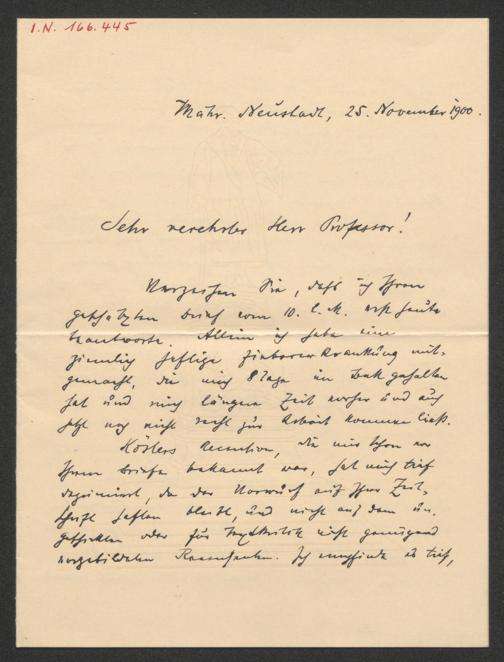 I.N. 166.445
Mähr. Neustadt, 25. November 1900.
Sehr verehrter Herr Professor!
Verzeihen Sie, daß ich Ihren
geschätzten Brief vom 10. l. M. erst heute
beantworte. Allein ich habe eine
ziemlich heftige Fiebererkrankung mit-
gemacht, die mich 8 Tage im Bett gehalten
hat und mich längere Zeit vorher und auch
jetzt noch nicht recht zur Arbeit kommen ließ.
Kösters Recension, die mir schon vor
Ihrem Briefe bekannt war, hat mich tief
deprimiert, da der Vorwurf auf Ihrer Zeit-
schrift haften bleibt, und nicht auf dem un-
geschickten oder für Textkritik nicht genügend
vorgebildeten Recensenten. Ich empfinde es tief,